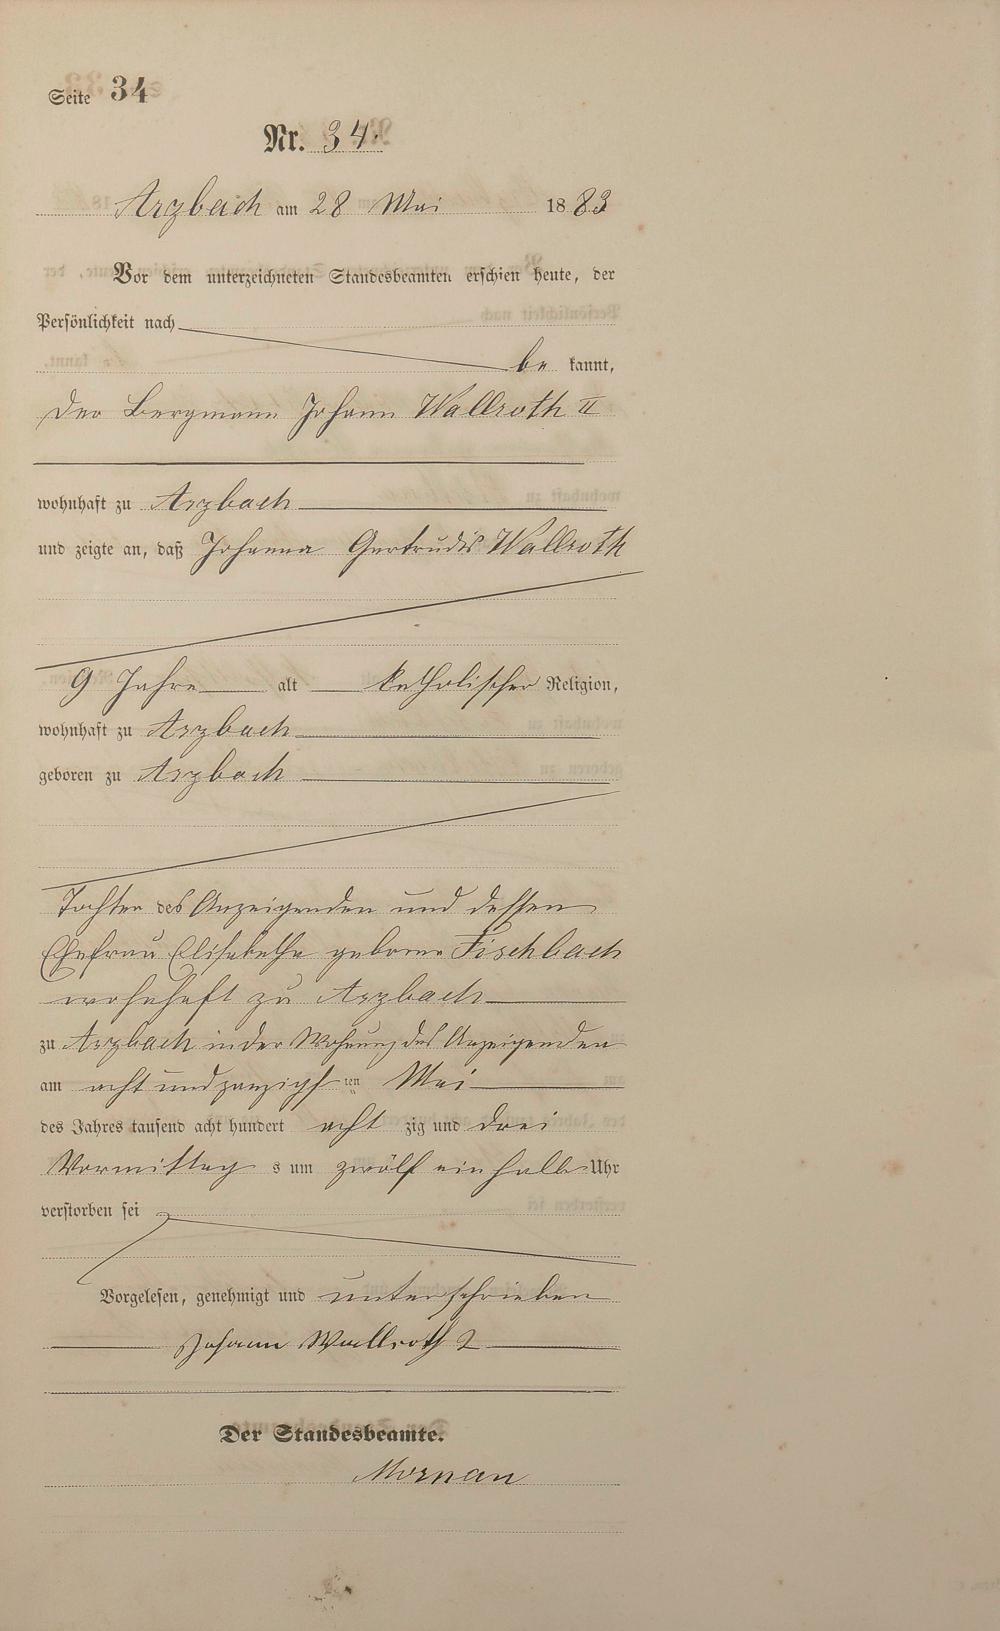 Seite 34
Nr. 34.
Arzbach am 28 Mai 1883
Vor dem unterzeichneten Standesbeamten erschien heute, der
Persönlichkeit nach
be kannt,
der Bergmann Johann Wallroth II
wohnhaft zu Arzbach
und zeigte an, daß Johanna Gertrudis Wallroth
9 Jahre alt katholischer Religion,
wohnhaft zu Arzbach
geboren zu Arzbach
Tochter des Anzeigenden und dessen
Ehefrau Elisabetha geborne Fischbach
wohnhaft zu Arzbach
zu Arzbach in der Wohnung des Anzeigenden
am acht und zwanzigs ten Mai
des Jahres tausend acht hundert acht zig und drei
Vormittag s um zwölf ein halb Uhr
verstorben sei
Vorgelesen, genehmigt und unterschrieben
Johann Wallroth 2
Der Standesbeamte.